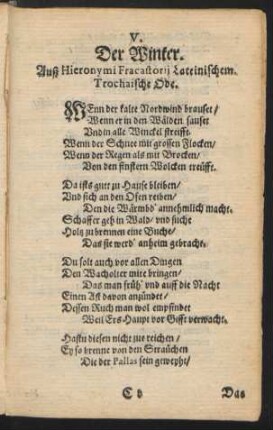 V.
Der Winter.
Auß Hieronymi Fracastorij Lateinischem.
Trochaische Ode.
WEnn der kalte Nordwind brauset/
Wenn er in den Wälden sauset
Vnd in alle Winckel streifft.
Wenn der Schnee mit grossen Flocken/
Wenn der Regen als mit Brocken/
Von den finstern Wolcken treüfft.
Da ists gut zu Hause bleiben/
Vnd sich an den Ofen reiben/
Den die Wärmbd' annehmlich macht.
Schaffer geh in Wald/ vnd suche
Holz zu brennen eine Buche/
Das sie werd' anheim gebracht.
Du solt auch vor allen Dingen
Den Wacholter mite bringen/
Das man früh' vnd auff die Nacht
Einen Ast davon anzündet/
Dessen Ruch man wol empfindet
Weil Ers-Haupt vor Gifft verwacht.
Hastu diesen nicht zus reichen/
Ey so brenne von den Straüchen
Die der Pallas sein geweyht/
C v
Das